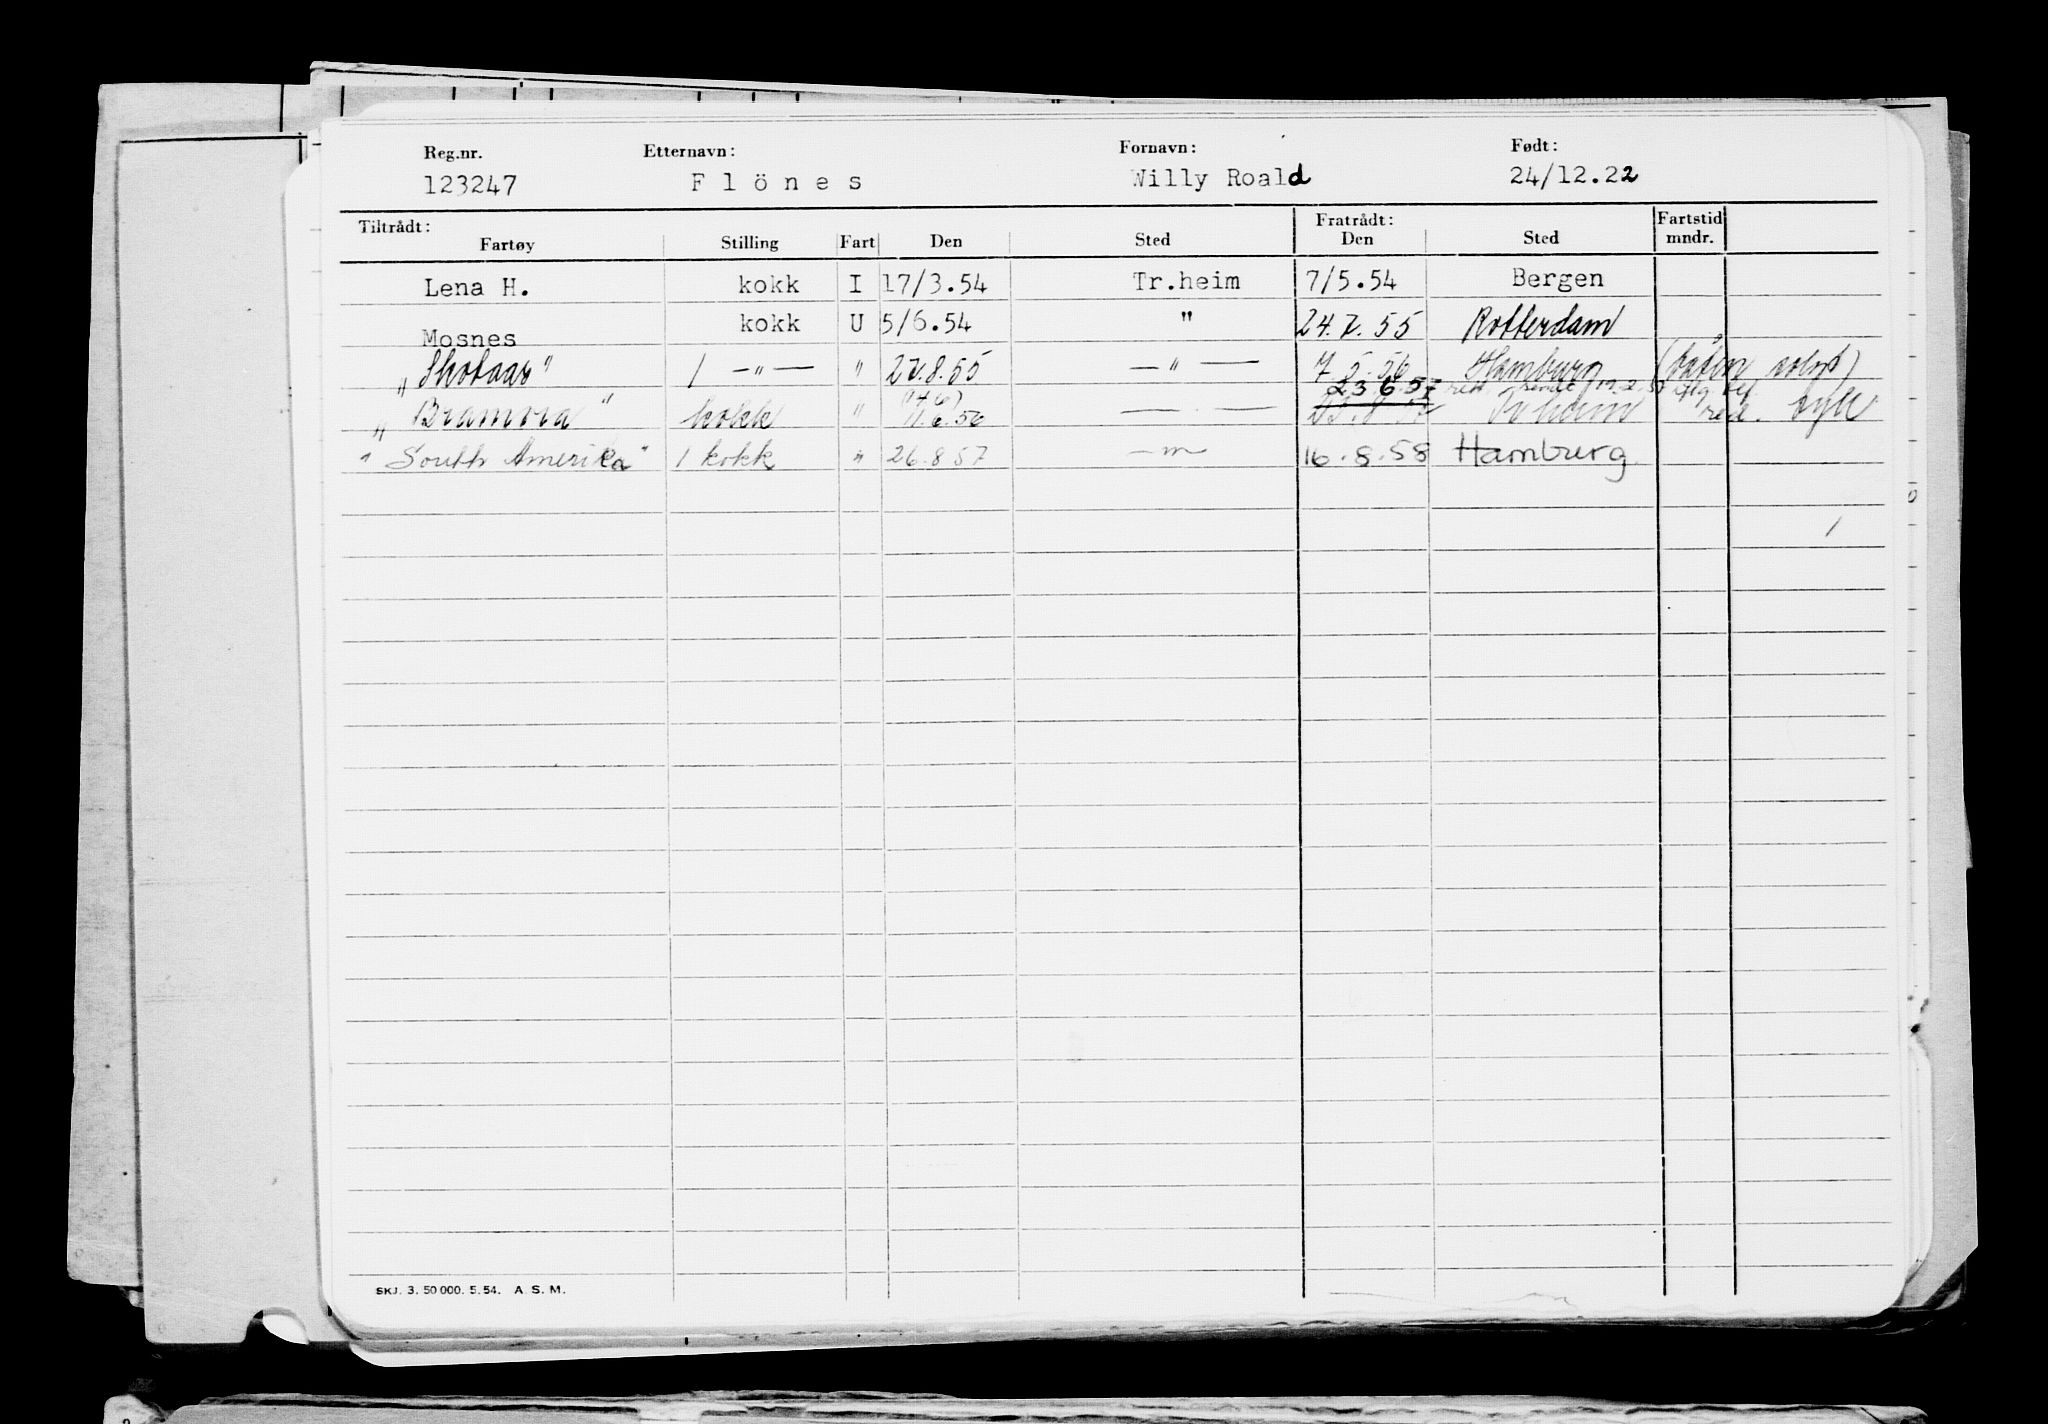 Reg.nr. Etternavn: Fornavn: Født:
123247 Flönes Willy Roald 24/12.22
Tiltrådt: Fratrådt: Fartstid
Fartøy Stilling Fart Den Sted Den Sted mndr.
Lena H. kokk I 17/3.54 Tr.heim 7/5.54 Bergen
Mosnes kokk U 5/6.54 " 24.7.55 Rotterdam
„Skotaas" 1 —„— " 27.8.55 —"— 7.5.56 Hamburg (båten solgt)
23 6 57
(14/6)
„Bramora" kokk " 11.6.56 — . — Tr heim syk
" South Amerika" 1 kokk " 26.8.57 —"— 16.8.58 Hamburg
SKJ. 3. 50 000. 5. 54. A. S. M.